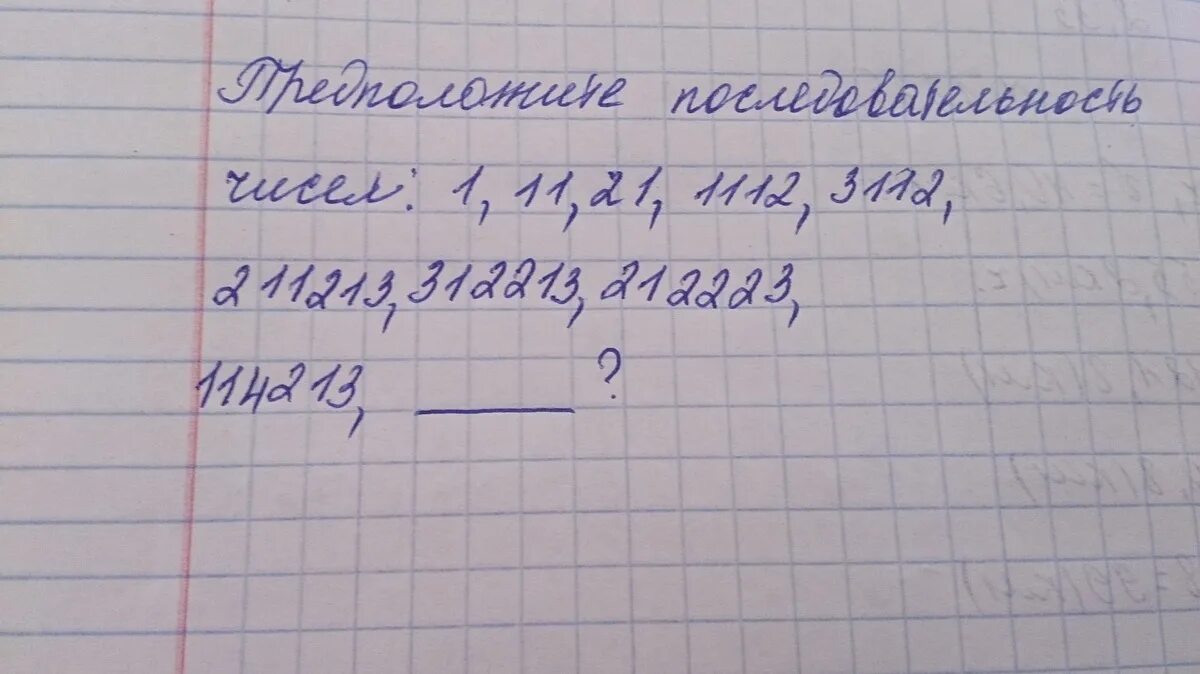 Предположите последовательность
чисел: 1, 11, 21, 1112, 3112,
211213, 312213, 212223,
114213, ______ ?